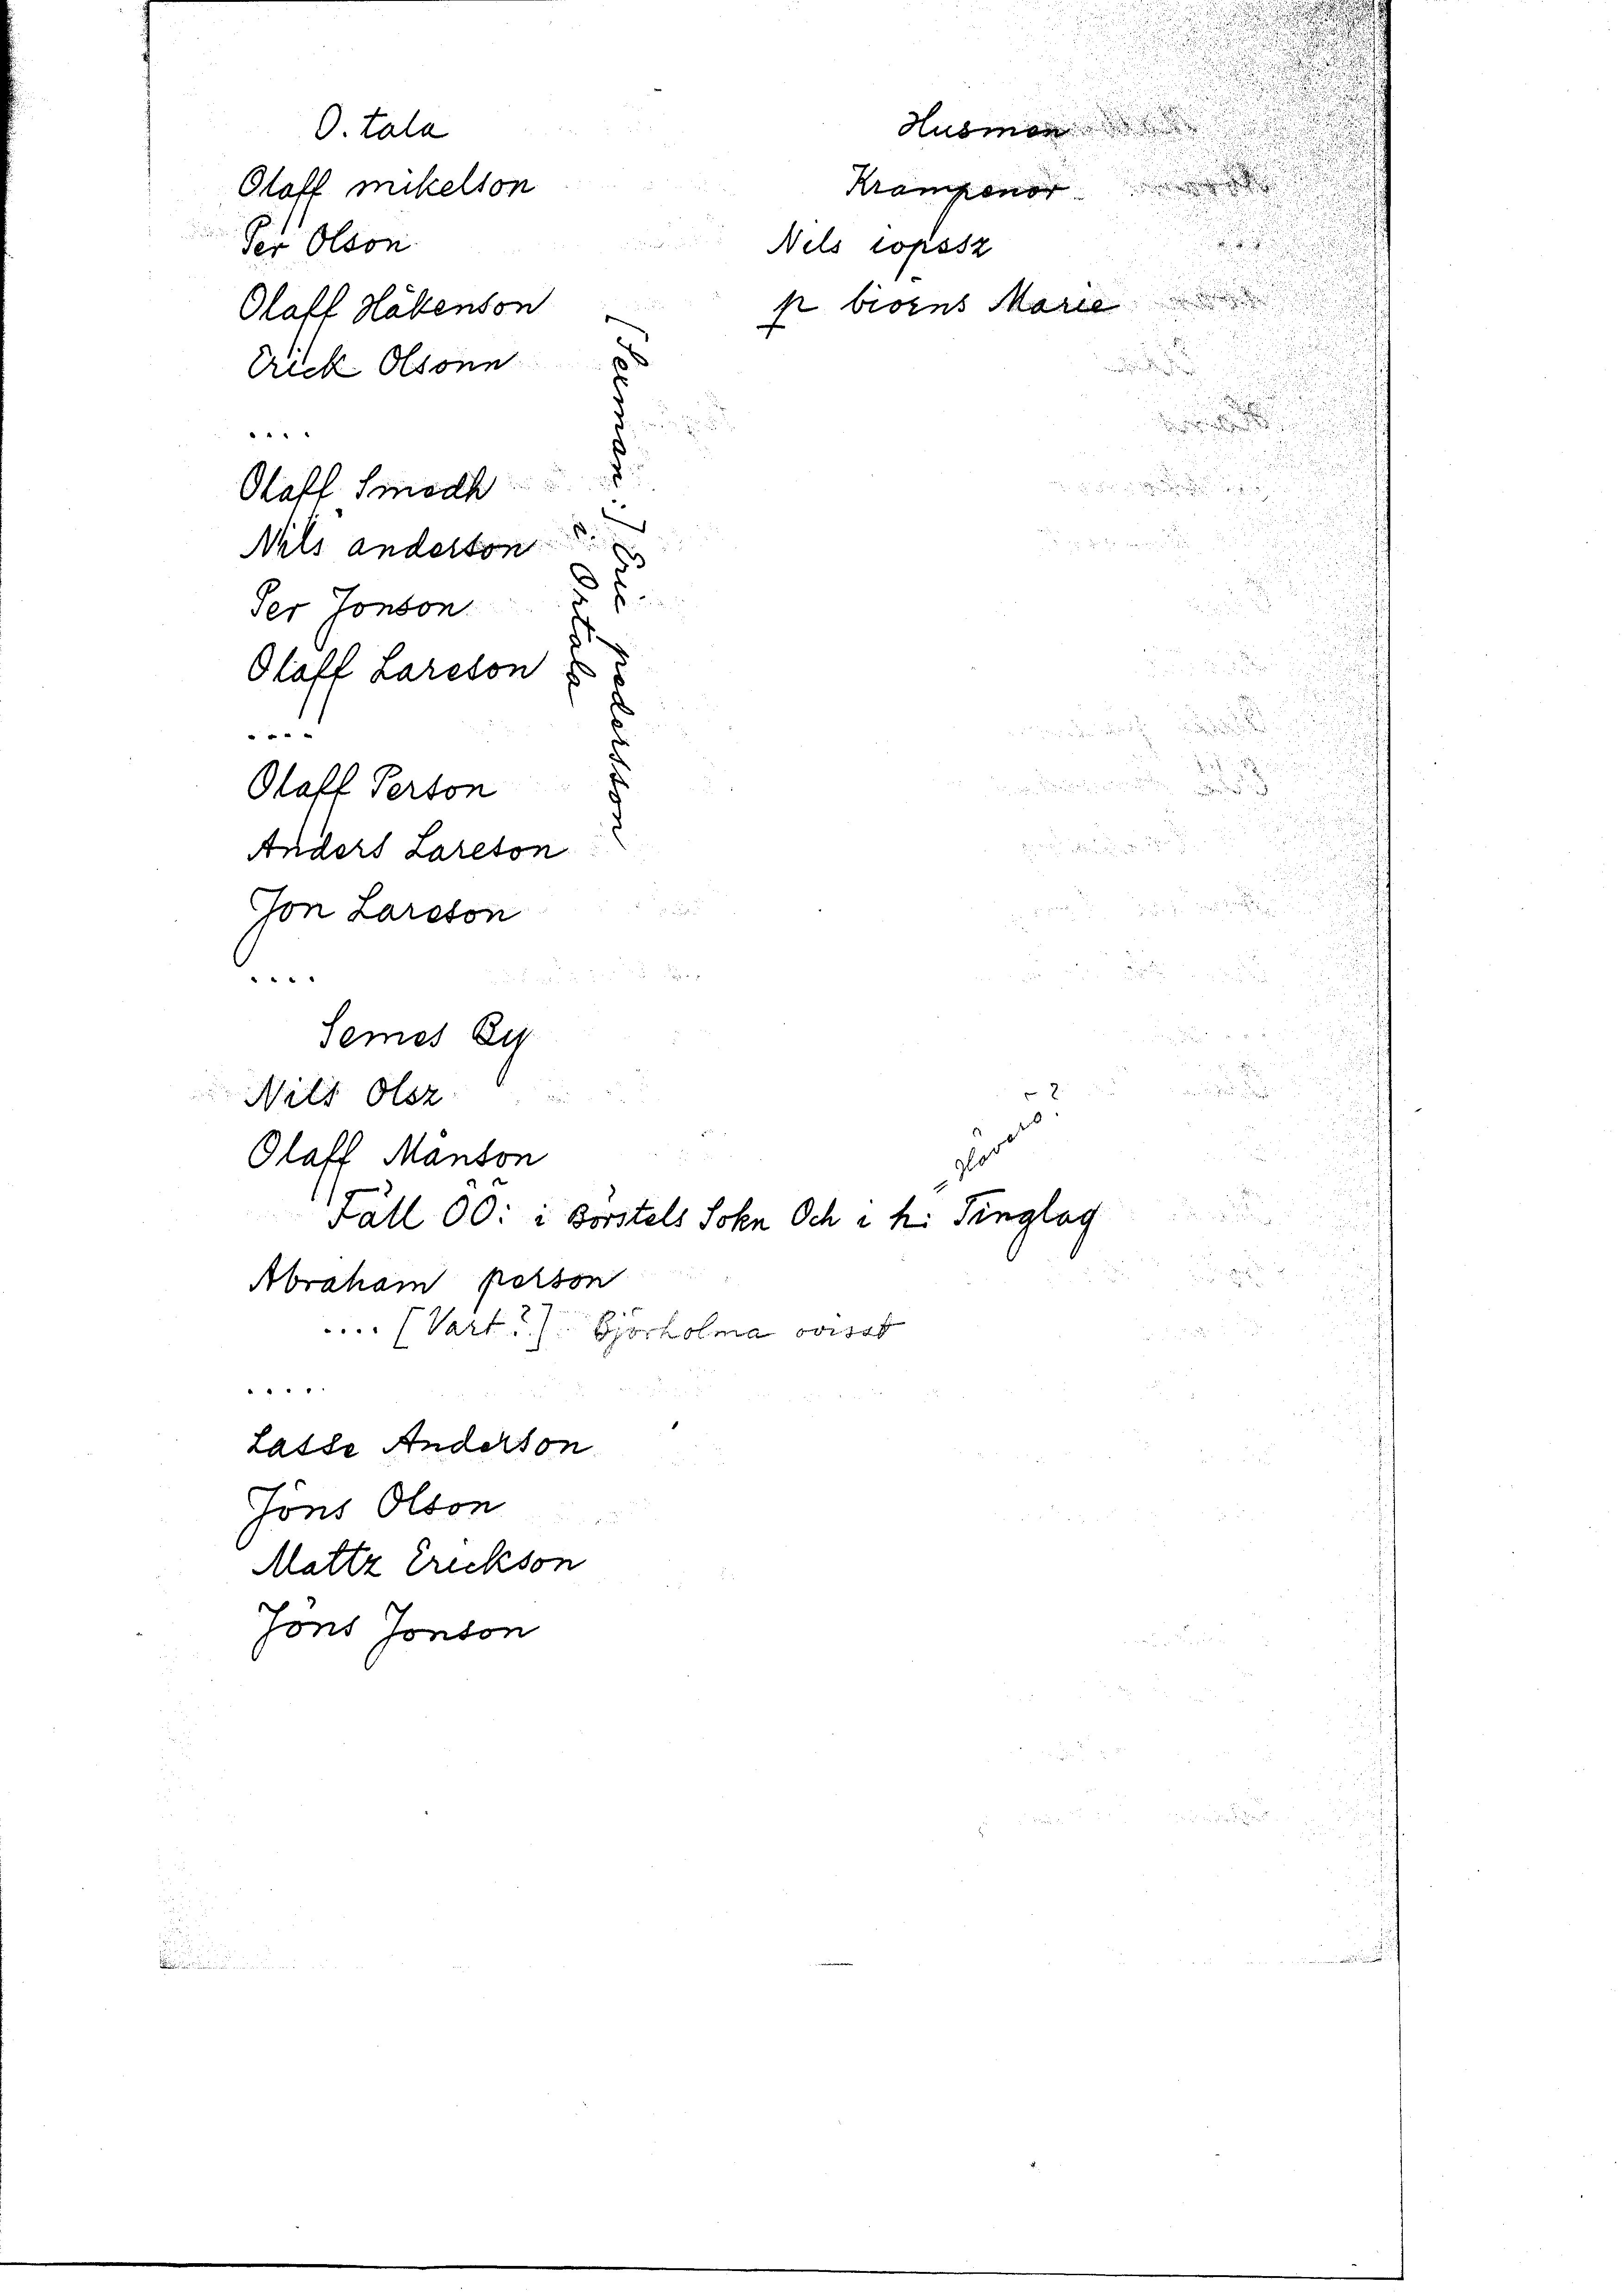 O. tala
Olaff mikelson
Per Olson
Olaff Håkenson
Erick Olsonn
....
Olaff Smedh
Nils anderson
Per Jonson
Olaff Larsson
....
Olaff Person
Anders Larsson
Jon Larsson
....
[Serman:] Eric pedersson
i Ortala
Husmen
Krampenor
Nils iopssz
p biorns Marie
Semes By
Nils Olsz
Olaff Månson
Fäll ÖÖ: i Börstels Sokn Och i h: Tinglag
Abraham person
.... [Vart?] Björholma ovisst
....
Lasse Anderson
Jöns Olson
Mattz Erickson
Jöns Jonson